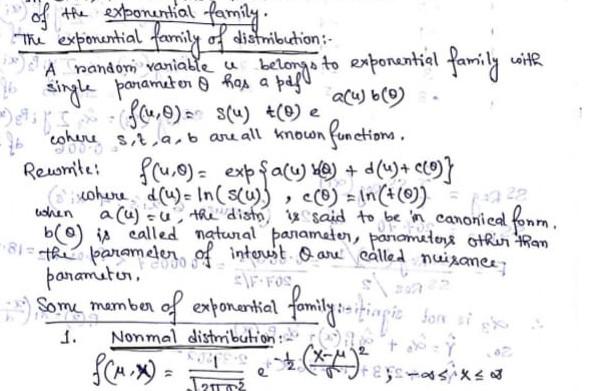 of the exponential family.
The exponential family of distribution:-
A random variable u belongs to exponential family with
single parameter θ has a pdf
f(u,θ) = s(u) t(θ) e^{a(u) b(θ)}.
where s, t, a, b are all known functions.
Rewrite: f(u,θ) = exp{a(u) b(θ) + d(u) + c(θ)}
where, d(u) = ln(s(u)), c(θ) = ln(t(θ))
when a(u) = u, the distn, is said to be in canonical form.
b(θ) is called natural parameter, parameters other than
the parameter of interest θ are called nuisance
parameter.
Some member of exponential family:-
1. Normal distribution:-
f(μ,x) = 1/√2πσ² e^{-1/2 (x-μ/σ)²} ; -∞ ≤ x ≤ ∞